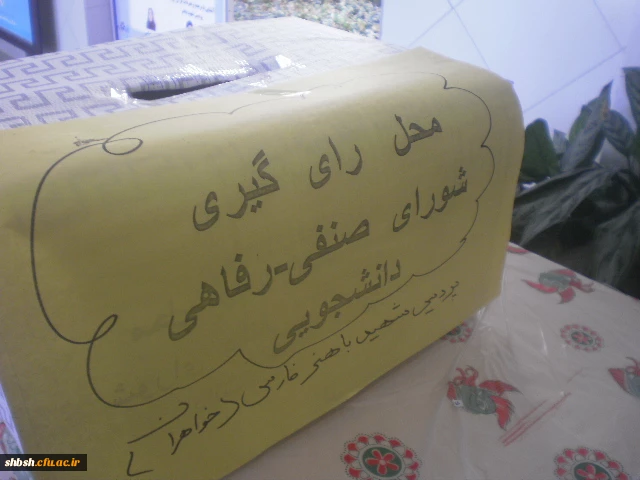 محل رای گیری
شورای صنفی-رفاهی
دانشجویی
پردیس شهید باهنر فارس (خواهران)
shbsh.cfu.ac.ir